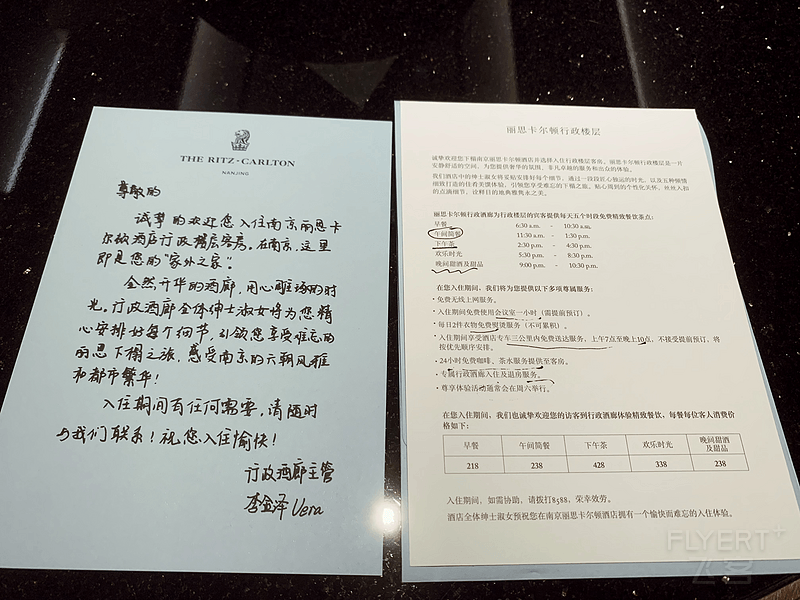 THE RITZ-CARLTON
NANJING
尊敬的
诚挚的欢迎您入住南京丽思卡
尔顿酒店行政楼层客房。在南京，这里
即是您的“家外之家”。
全然升华的酒廊，用心雕琢的时
光。行政酒廊全体绅士淑女将为您精
心安排好每个细节，引领您享受难忘的
丽思下榻之旅，感受南京的六朝风雅
和都市繁华！
入住期间有任何需要，请随时
与我们联系！祝您入住愉快！
行政酒廊主管
李金泽 Vera
丽思卡尔顿行政楼层
诚挚欢迎您下榻南京丽思卡尔顿酒店并选择入住行政楼层客房。丽思卡尔顿行政楼层是一片
安静舒适的空间，为您提供奢华的氛围、非凡卓越的服务和出众的体验。
我们酒店中的绅士淑女将妥帖安排好每个细节，通过一段段匠心独运的时光，以及五种倾情
细致打造的佳肴美馔体验，引领您享受难忘的下榻之旅。贴心周到的个性化关怀，丝丝入扣
的点滴细节，诠释目的地典雅隽永之美。
丽思卡尔顿行政酒廊为行政楼层的宾客提供每天五个时段免费精致餐饮茶点：
早餐 6:30 a.m. - 10:30 a.m.
午间简餐 11:30 a.m. - 1:30 p.m.
下午茶 2:30 p.m. - 4:30 p.m.
欢乐时光 5:30 p.m. - 8:30 p.m.
晚间甜酒及甜品 9:00 p.m. - 10:30 p.m.
在您入住期间，我们将为您提供以下多项尊属服务：
·免费无线上网服务。
·入住期间免费使用会议室一小时（需提前预订）。
·每日2件衣物免费熨烫服务（不可累积）。
·入住期间享受酒店专车三公里内免费送达服务，上午7点至晚上10点，不接受提前预订，将
按优先顺序安排。
·24小时免费咖啡、茶水服务提供至客房。
·专属行政酒廊入住及退房服务。
·尊享体验活动通常会在周六举行。
在您入住期间，我们也诚挚欢迎您的访客到行政酒廊体验精致餐饮，每餐每位客人消费价
格如下：
早餐 午间简餐 下午茶 欢乐时光 晚间甜酒及甜品
218 238 428 338 238
入住期间，如需协助，请拨打8588，荣幸效劳。
酒店全体绅士淑女预祝您在南京丽思卡尔顿酒店拥有一个愉快而难忘的入住体验。
FLYERT+